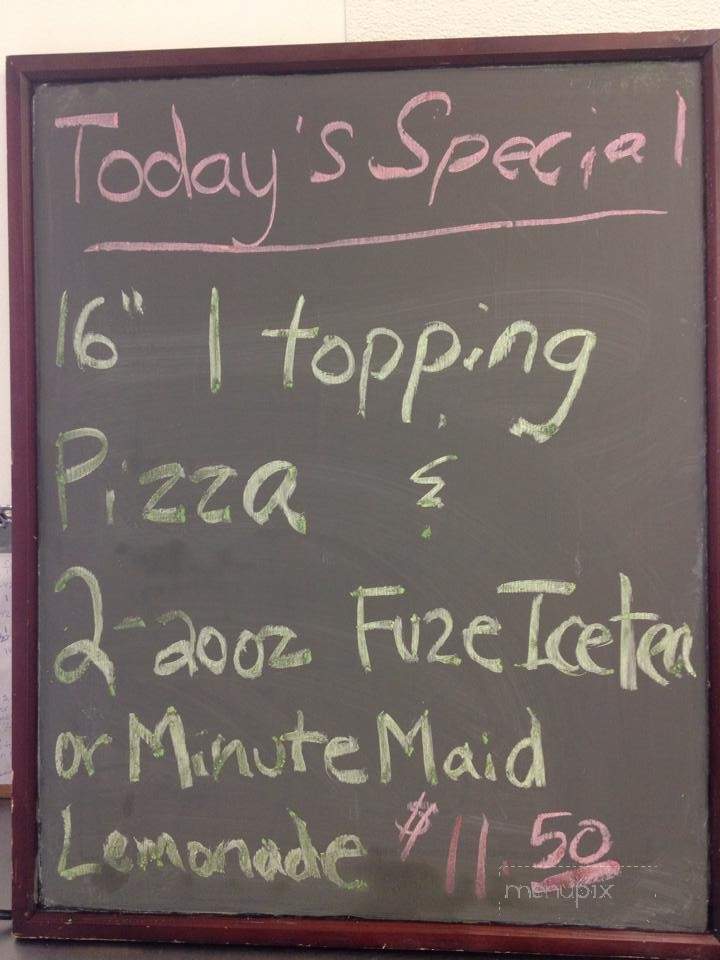 Today's Special
16" 1 topping
Pizza &
2-20oz Fuze Icetea
or Minute Maid
Lemonade $11.50
menupix